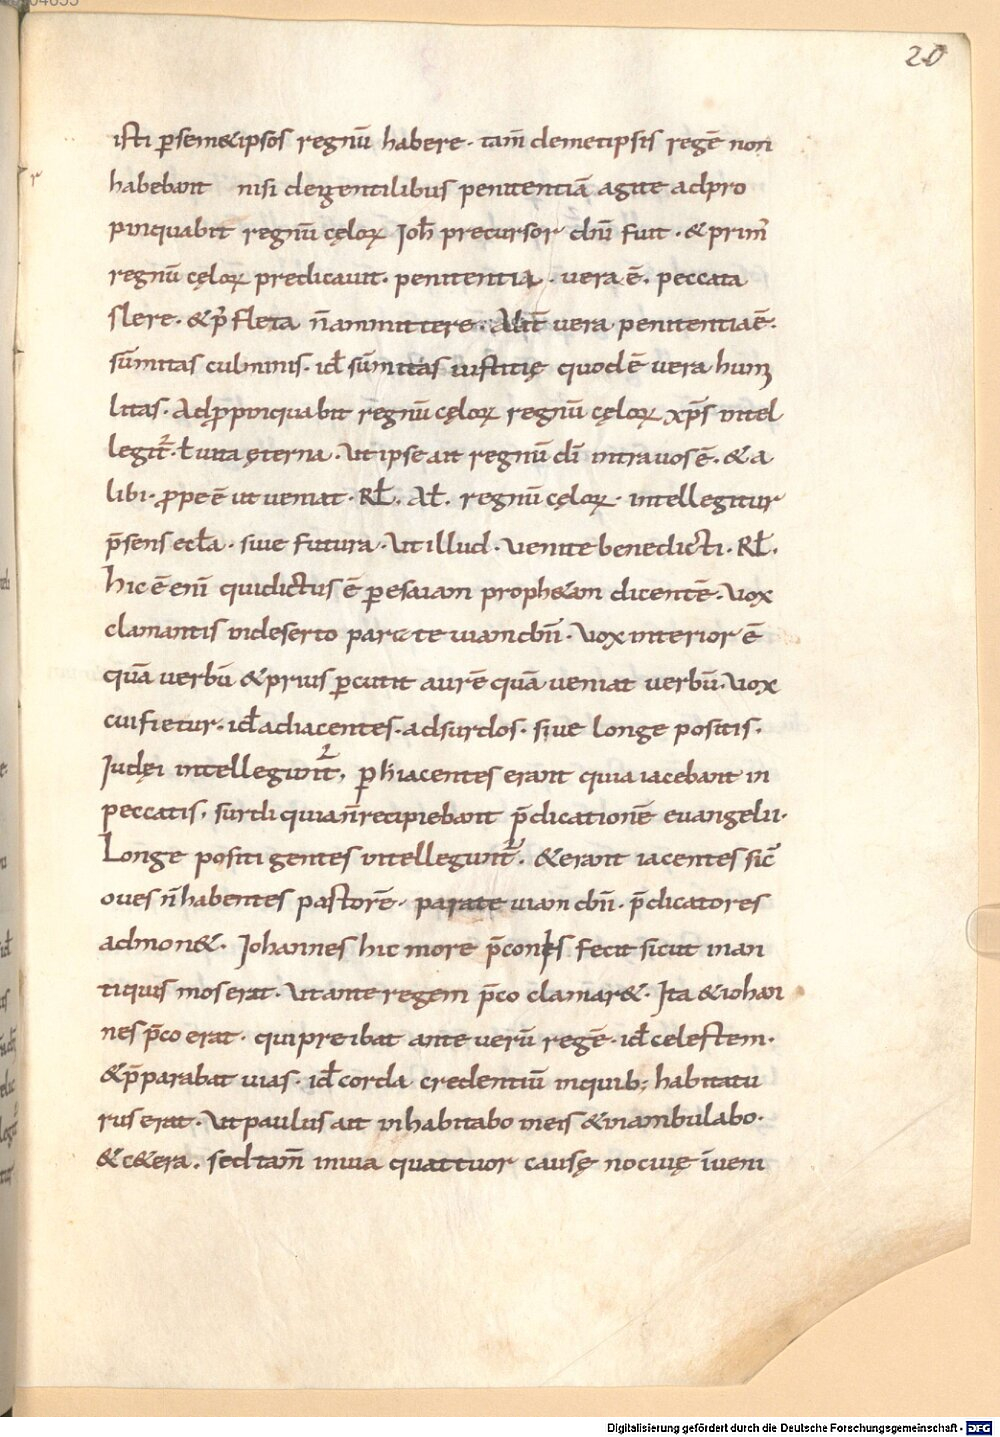 20
isti ꝑ sem&ipsos regnū habere · tam̄ demetipsis regē non
habebant nisi degentilibus penitentiā agite adpro
pinquabit regnū cęloꝝ Joh̄ precursor dn̄i fuit · & prim̉
regnū cęloꝝ predicauit · penitentia · uera ē · peccata
flere · & p̄ fleta n̄ ammittere · Alit̄ uera penitentia ē ·
sūmitas culminis · id̄ sūmitas iustitię quod ē uera humi
litas · Adꝓpinquabit regnū cęloꝝ regnū cęloꝝ xp̄s intel
legit̄ · ł uita ęterna · Ut ipse ait regnū dī intra uos ē · & a
libi · ꝓpe ē ut ueniat · Rł · Ał · regnū cęloꝝ · intellegitur
p̄sens eccła · siue futura · Ut illud · Uenite benedicti · Rł ·
hic ē enī qui dictus ē ꝑ esaiam proph&am dicentē · Uox
clamantis in deserto parate uiam dn̄i · Uox interior ē
quā uerbū & prius ꝑcutit aurē quā ueniat uerbū · Uox
cui fietur · id̄ ad iacentes · ad surdos · siue longe positis ·
Judęi intellegunt̄ · ꝑ h iacentes erant quia iacebant in
peccatis · surdi quia n̄ recipiebant p̄dicationē euangelii ·
Longe positi gentes intellegunt̄ · & erant iacentes sic̄
oues n̄ habentes pastorē · parate uiam dn̄i · p̄dicatores
admon& · Johannes hic more p̄conis fecit sicut in an
tiquis mos erat · Ut ante regem p̄co clamar& · Ita & iohan
nes p̄co erat · qui preibat ante uerū regē · id̄ celestem ·
& p̄parabat uias · id̄ corda credentiū in quib; habitatu
rus erat · Ut paulus ait inhabitabo in eis & inambulabo ·
& c&era · sed tam̄ in uia quattuor causę nociuę īueni
Digitalisierung gefördert durch die Deutsche Forschungsgemeinschaft - DFG